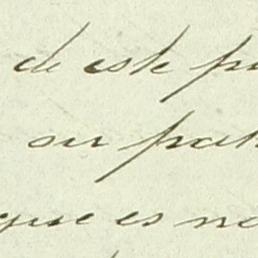 de este pu
su patr
que es no